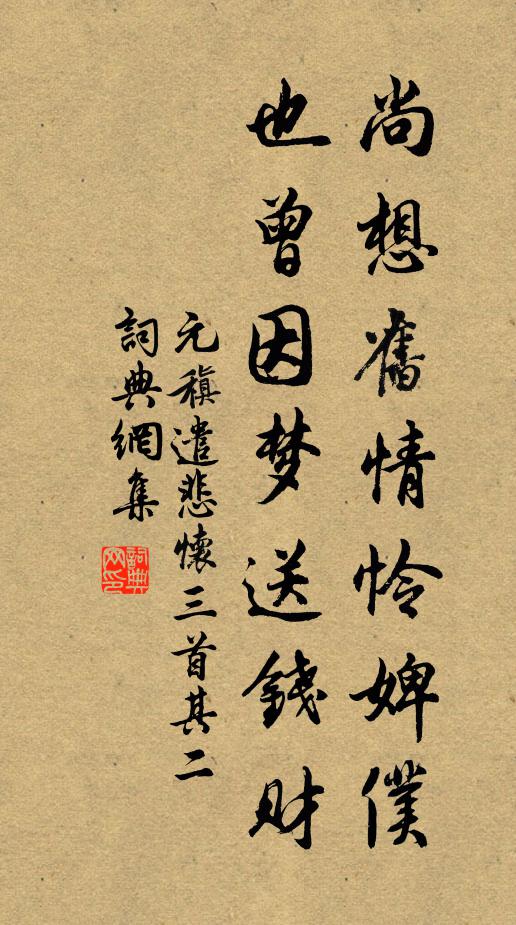 尚想舊情怜婢僕
也曾因梦送錢财
元稹遣悲懷三首其二
詞典網集
詞典網印